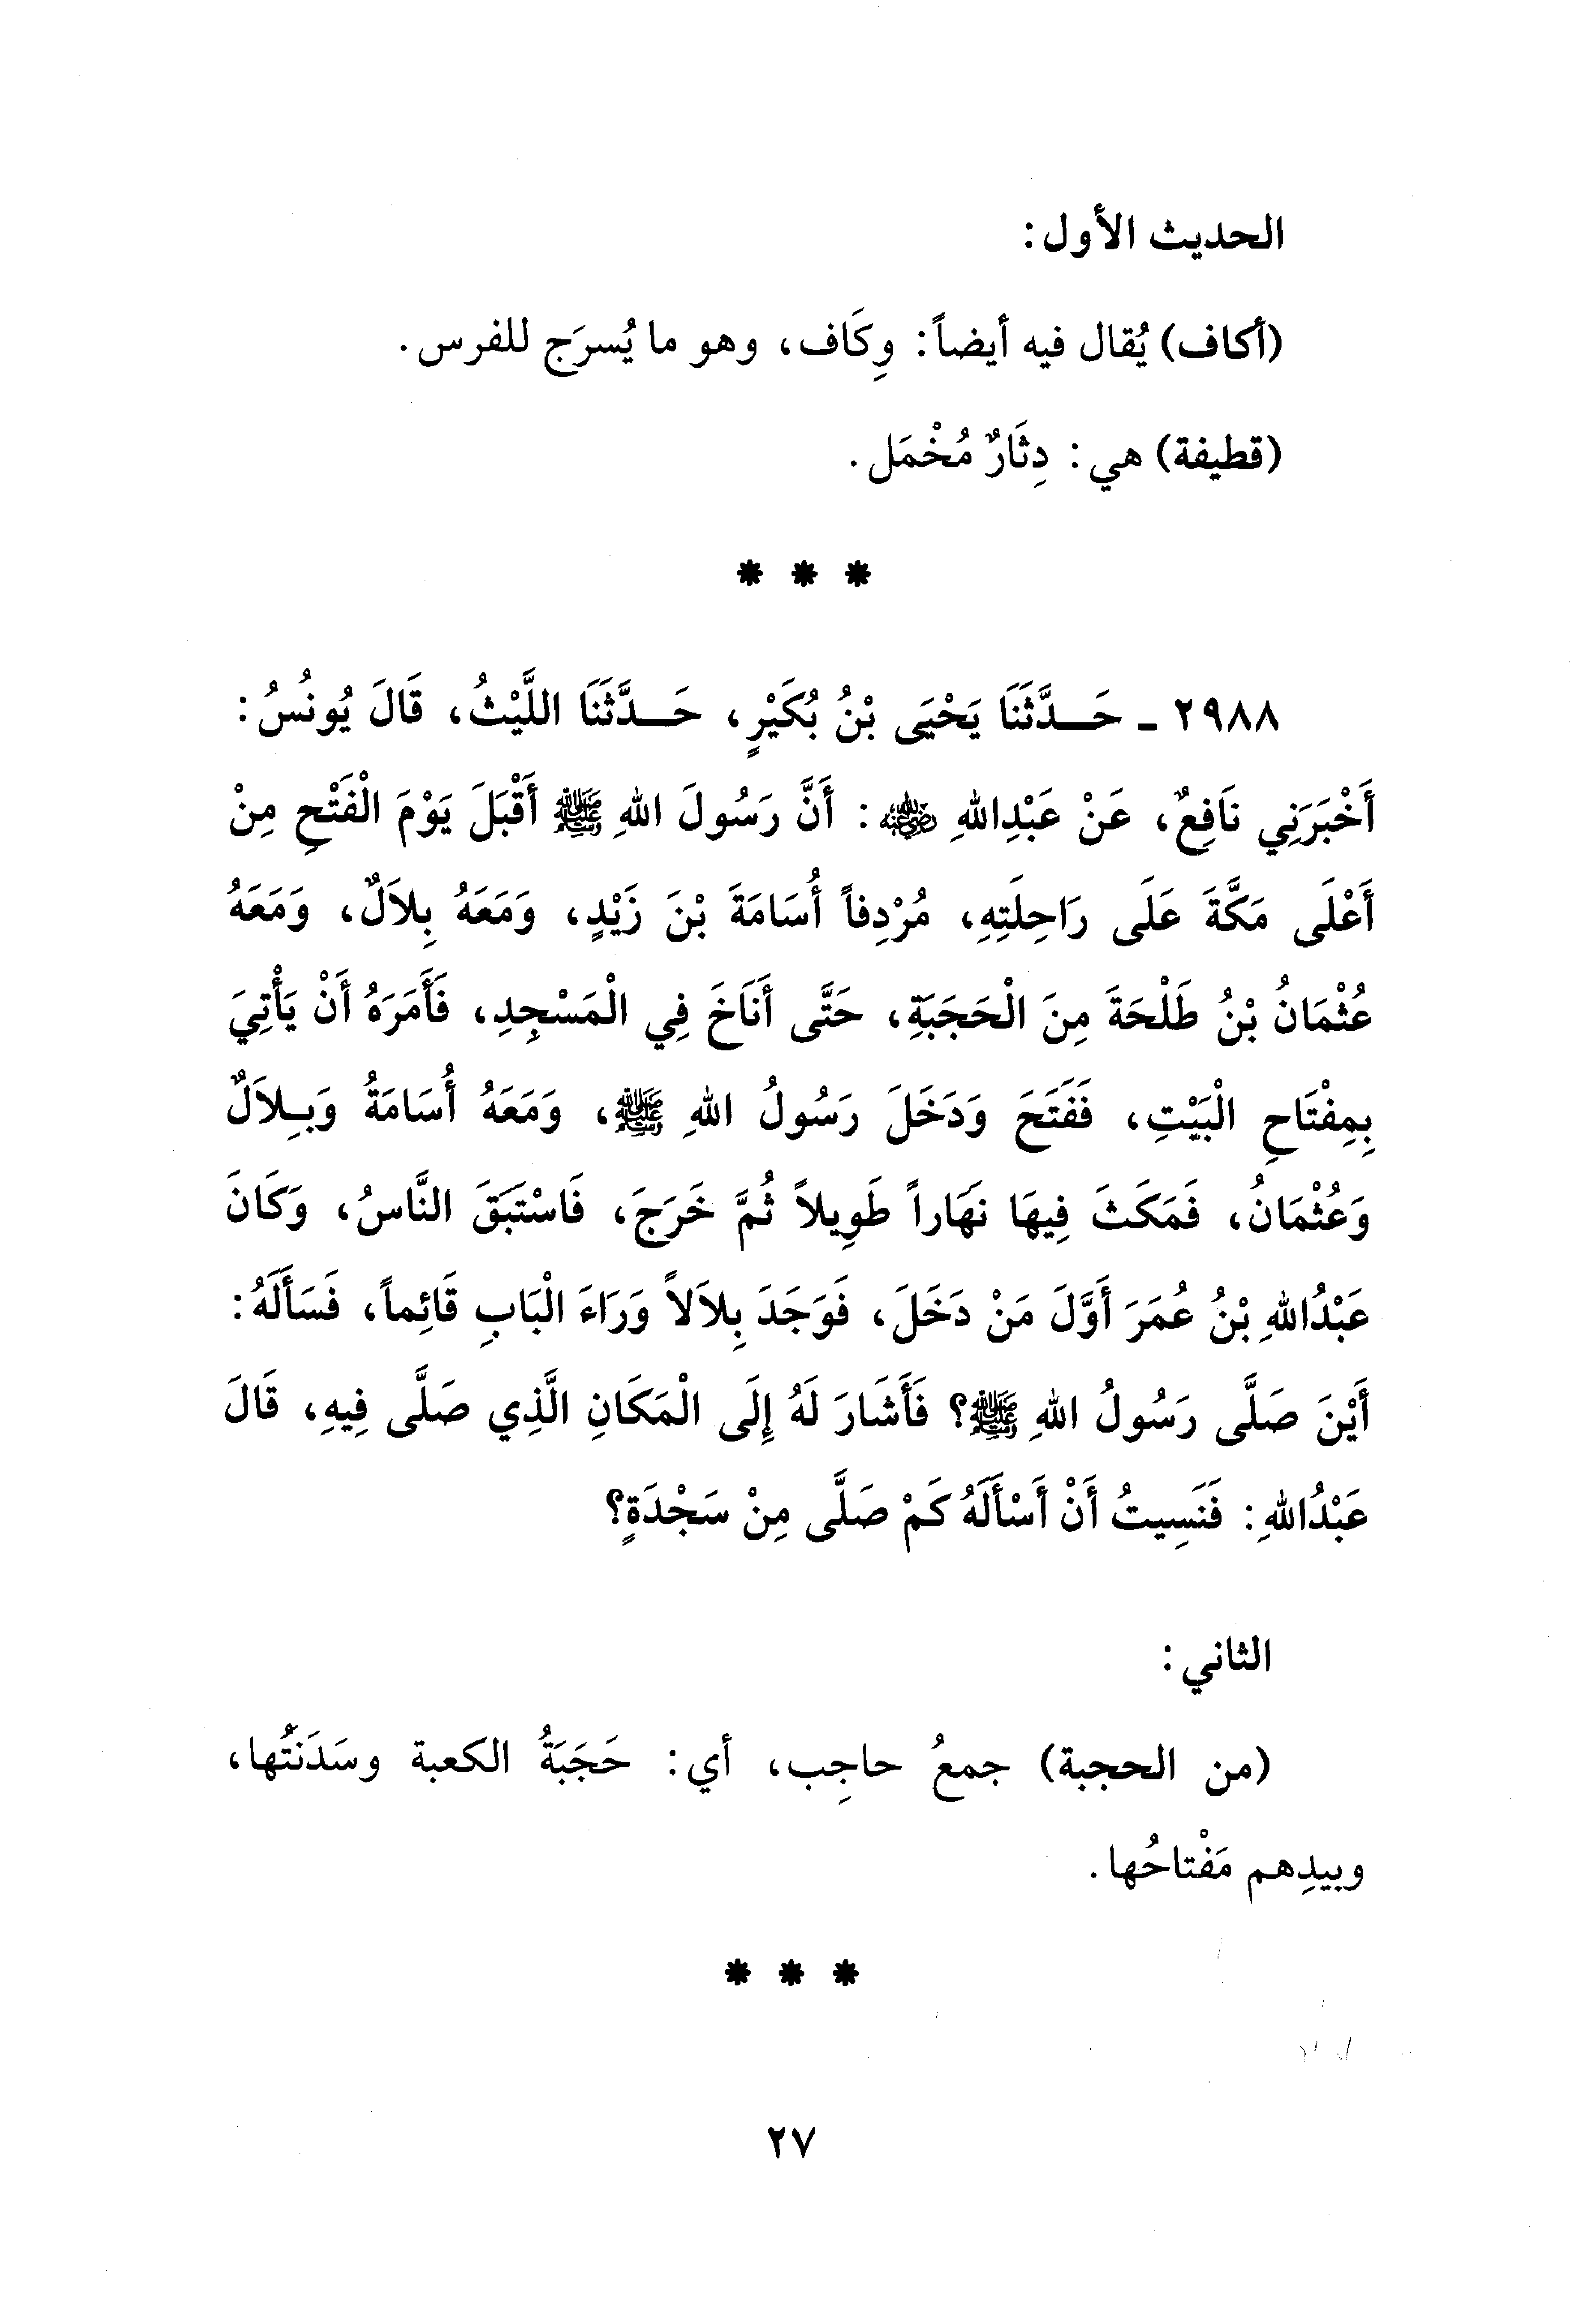 الحديث الأول:
(أكاف) يُقال فيه أيضاً: وِكَاف، وهو ما يُسرَج للفرس.
(قطيفة) هي: دِثَارٌ مُخْمَل.
* * *
٢٩٨٨ ـ حَـــدَّثَنَا يَحْيَى بْنُ بُكَيْرٍ، حَـــدَّثَنَا اللَّيْثُ، قَالَ يُونُسُ:
أَخْبَرَنِي نَافِعٌ، عَنْ عَبْدِاللهِ رضي الله عنه: أَنَّ رَسُولَ اللهِ ﷺ أَقْبَلَ يَوْمَ الْفَتْحِ مِنْ
أَعْلَى مَكَّةَ عَلَى رَاحِلَتِهِ، مُرْدِفاً أُسَامَةَ بْنَ زَيْدٍ، وَمَعَهُ بِلاَلٌ، وَمَعَهُ
عُثْمَانُ بْنُ طَلْحَةَ مِنَ الْحَجَبَةِ، حَتَّى أَنَاخَ فِي الْمَسْجِدِ، فَأَمَرَهُ أَنْ يَأْتِيَ
بِمِفْتَاحِ الْبَيْتِ، فَفَتَحَ وَدَخَلَ رَسُولُ اللهِ ﷺ، وَمَعَهُ أُسَامَةُ وَبِـلاَلٌ
وَعُثْمَانُ، فَمَكَثَ فِيهَا نَهَاراً طَوِيلاً ثُمَّ خَرَجَ، فَاسْتَبَقَ النَّاسُ، وَكَانَ
عَبْدُاللهِ بْنُ عُمَرَ أَوَّلَ مَنْ دَخَلَ، فَوَجَدَ بِلاَلاً وَرَاءَ الْبَابِ قَائِماً، فَسَأَلَهُ:
أَيْنَ صَلَّى رَسُولُ اللهِ ﷺ؟ فَأَشَارَ لَهُ إِلَى الْمَكَانِ الَّذِي صَلَّى فِيهِ، قَالَ
عَبْدُاللهِ: فَنَسِيتُ أَنْ أَسْأَلَهُ كَمْ صَلَّى مِنْ سَجْدَةٍ؟
الثاني:
(من الحجبة) جمعُ حاجِب، أي: حَجَبَةُ الكعبة وسَدَنَتُها،
وبيدِهم مَفْتاحُها.
* * *
٢٧